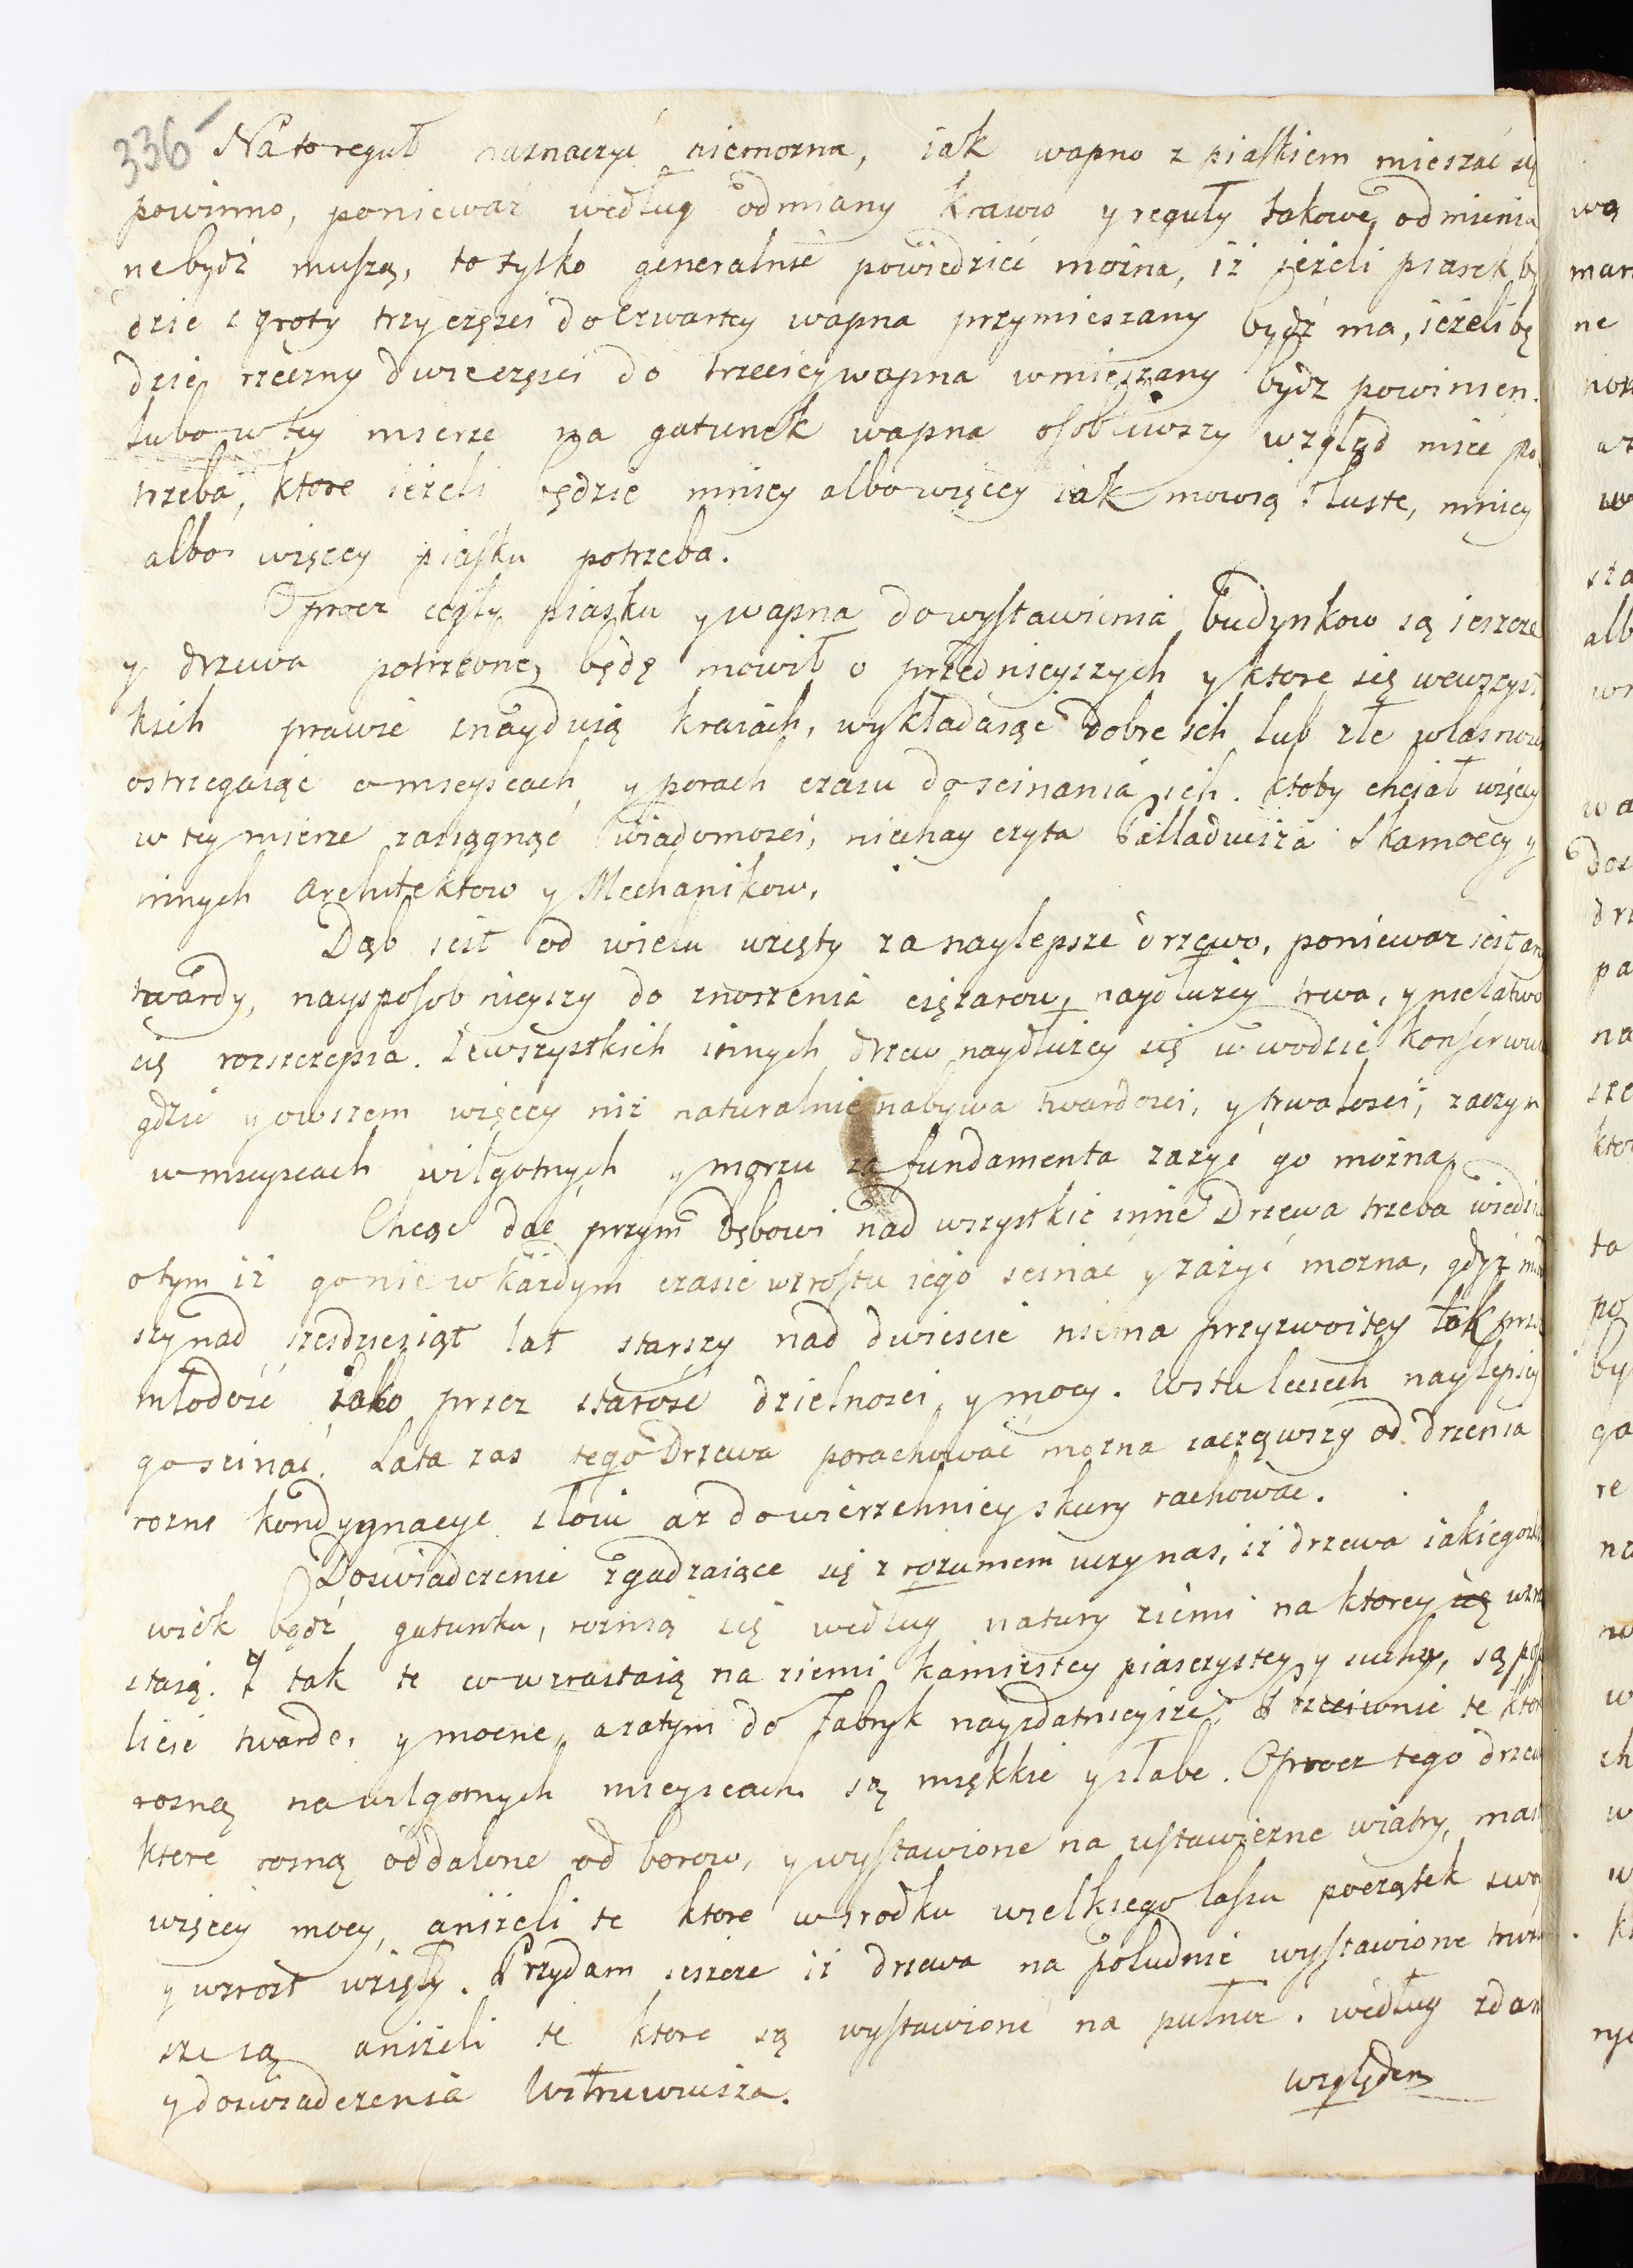 336
Na to reguł naznaczyć niemozna, iak wapno z piaskiem mieszać się
powinno, poniewaz według odmiany kraiow y reguły takowe odmienia
ne bydź muszą, to tylko generalnie powiedzieć można, iż ieżeli piasek bę
dzie z groty trzy częsci do czwartey wapna przymieszany bydź ma, ieżeli bę
dzie rzeczny dwie częsci do trzeciey wapna wmieszany bydz powinien.
lubo w tey mierze na gatunek wapna osobliwszy wzgląd mieć po
trzeba, ktore ieżeli będzie mniey albo więcey iak mowią tłuste, mniey
albo więcey piasku potrzeba.
Oprocz cegły piasku y wapna do wystawienia budynkow są ieszcze
y drzewa potrzebne, będę mowił o przednieyszych y ktore się wewszyst
kich prawie znayduią kraiach, wykładaiąc dobre ich lub złe własnosci
ostrzegaiąc o mieyscach y porach czasu do scinania ich. Ktoby chciał więcey
w tey mierze zasiągnąc wiadomosci, niechay czyta Palladiusza Skamoccy y
innych Architektow y Mechanikow.
Dąb iest od wielu wzięty za naylepsze drzewo, poniewaz iest
twardy, naysposobnieyszy do znoszenia ciężarow, naydłużey trwa, y niełatwo
się rozszczepia. Zewszystkich innych drzew naydłużey się w wodzie konserwu
gdzie y owszem więcey niż naturalnie nabywa twardosci, y trwałosci, zaczym
w mieyscach wilgotnych y morzu za fundamenta zażyć go można.
Chcąc dać prym dębowi nad wszystkie inne Drzewa trzeba wiedzi
o tym iż go nie w każdym czasie wzrostu iego scinać y zażyć mozna, gdyż mło
szy nad szesdziesiąt lat starszy nad dwiescie niema przyzwoitey tak prze
młodość iako przez starość dzielnosci y mocy. W stu leciech naylepiey
go scinać. Lata zas tego Drzewa porachować mozna zacząwszy od drzenia
rozne kondygnacye słoiu az do wierzchniey skury rachować.
Doswiadczenie zgadzaiące się z rozumem uczy nas, iż drzewa iakiegożkol
wiek bądź gatunku, roznią się według natury ziemi na ktorey się wzra
staią. I tak te co wzrastaią na ziemi kamiestey piasczystey y suchey, są pos
licie twarde, y mocne, a zatym do Fabryk nayzdatnieysze. Przeciwnie te ktor
rosną na wilgotnych mieyscach są miękkie y słabe. Oprocz tego drzewa
ktore rosną oddalone od borow, y wystawione na ustawiczne wiatry, maią
więcey mocy, aniżeli te ktore w srodku wielkiego lassu początek swoy
y wzrost wzięły. Przydam ieszcze iż drzewa na południe wystawione trwal
sze są aniżeli te ktore są wystawione na pułnoc. według zdan
y doswiadczenia Witruwiusza.
względem